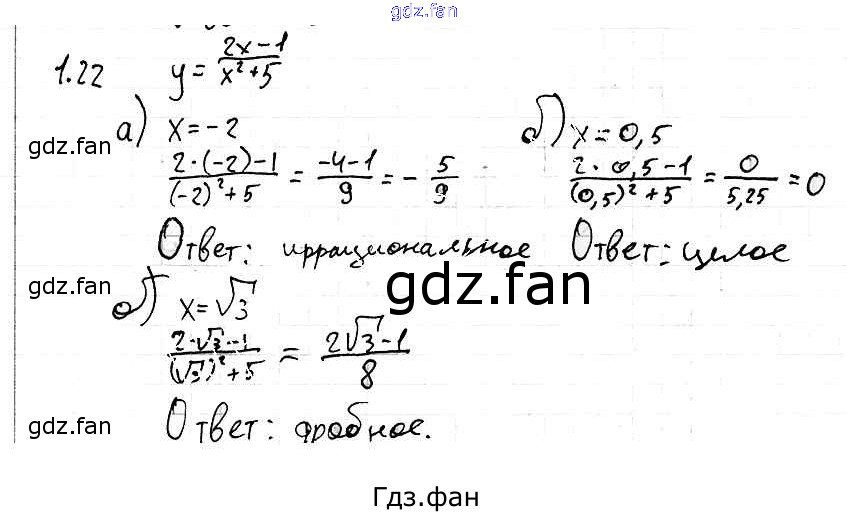 gdz.fan
1.22 y = (2x-1)/(x²+5)
а) x = -2
gdz.fan
(2·(-2)-1)/((-2)²+5) = (-4-1)/9 = -5/9
Ответ: иррациональное
б) x = 0,5
(2·0,5-1)/((0,5)²+5) = 0/5,25 = 0
Ответ: целое
gdz.fan
gdz.fan
б) x = √3
(2·√3-1)/((√3)²+5) = (2√3-1)/8
gdz.fan
Ответ: дробное.
Гдз.фан